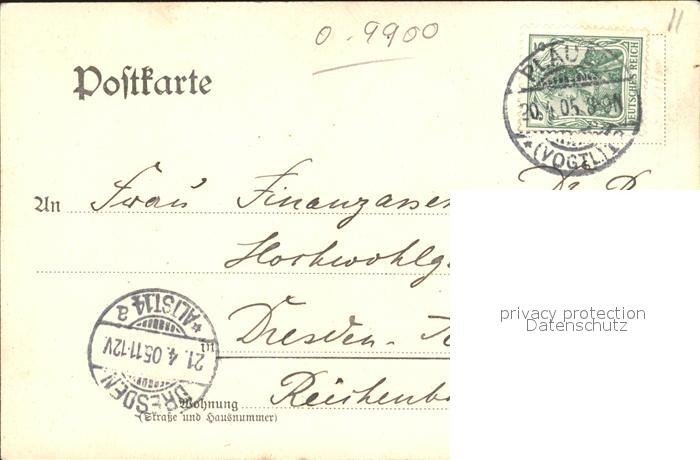 0-9900
11
Postkarte
5
DEUTSCHES REICH
PLAUEN
20.4.05. 8-9N
*(VOGTL.)1
An Frau Finanzassess Dr.
Hochwohlg
in Dresden-
Reichenb
Wohnung
(Straße und Hausnummer)
DRESDEN
21.4.05.11-12V
*ALTST.14 a
privacy protection
Datenschutz